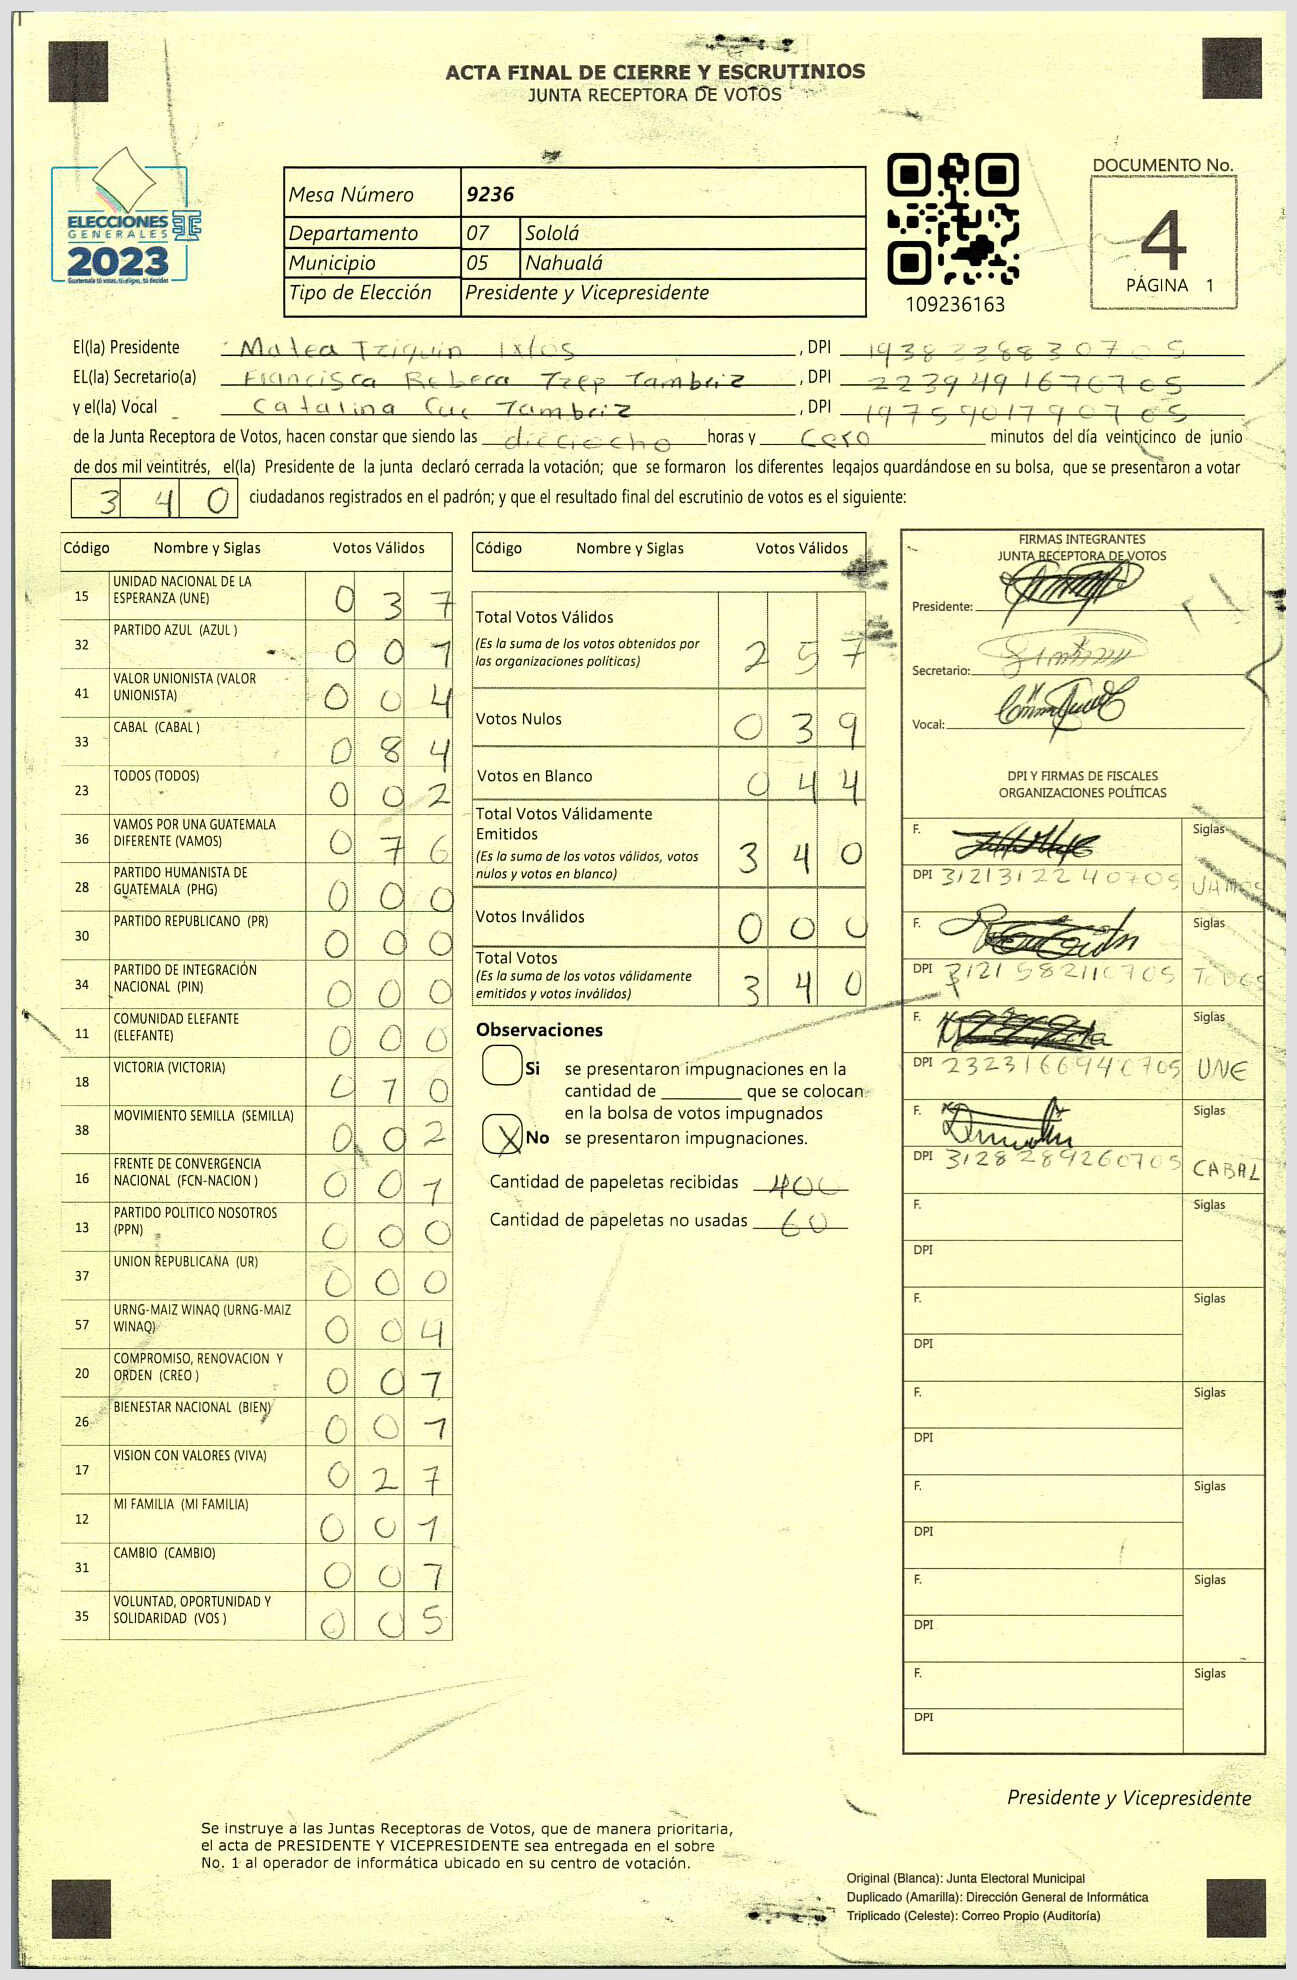 ACTA FINAL DE CIERRE Y ESCRUTINIOS
JUNTA RECEPTORA DE VOTOS
ELECCIONES
GENERALES
2023
Guatemala tú votas, tú eliges, tú decides
Mesa Número 9236
Departamento 07 Sololá
Municipio 05 Nahualá
Tipo de Elección Presidente y Vicepresidente
109236163
DOCUMENTO No.
4
PÁGINA 1
El(la) Presidente Matea Tziquin Ixtos, DPI 1938238830705
EL(la) Secretario(a) Francisca Rebeca Tzep Tambriz, DPI 2239491670705
y el(la) Vocal Catalina Cuc Tambriz, DPI 1975901790705
de la Junta Receptora de Votos, hacen constar que siendo las dieciocho horas y cero minutos del día veinticinco de junio
de dos mil veintitrés, el(la) Presidente de la junta declaró cerrada la votación; que se formaron los diferentes legajos guardándose en su bolsa, que se presentaron a votar
340 ciudadanos registrados en el padrón; y que el resultado final del escrutinio de votos es el siguiente:
Código Nombre y Siglas Votos Válidos
15 UNIDAD NACIONAL DE LA ESPERANZA (UNE) 037
32 PARTIDO AZUL (AZUL ) 001
41 VALOR UNIONISTA (VALOR UNIONISTA) 004
33 CABAL (CABAL ) 084
23 TODOS (TODOS) 002
36 VAMOS POR UNA GUATEMALA DIFERENTE (VAMOS) 076
28 PARTIDO HUMANISTA DE GUATEMALA (PHG) 000
30 PARTIDO REPUBLICANO (PR) 000
34 PARTIDO DE INTEGRACIÓN NACIONAL (PIN) 000
11 COMUNIDAD ELEFANTE (ELEFANTE) 000
18 VICTORIA (VICTORIA) 010
38 MOVIMIENTO SEMILLA (SEMILLA) 002
16 FRENTE DE CONVERGENCIA NACIONAL (FCN-NACION ) 001
13 PARTIDO POLITICO NOSOTROS (PPN) 000
37 UNION REPUBLICANA (UR) 000
57 URNG-MAIZ WINAQ (URNG-MAIZ WINAQ) 004
20 COMPROMISO, RENOVACION Y ORDEN (CREO ) 007
26 BIENESTAR NACIONAL (BIEN) 001
17 VISION CON VALORES (VIVA) 027
12 MI FAMILIA (MI FAMILIA) 001
31 CAMBIO (CAMBIO) 007
35 VOLUNTAD, OPORTUNIDAD Y SOLIDARIDAD (VOS ) 005
Código Nombre y Siglas Votos Válidos
Total Votos Válidos 257
(Es la suma de los votos obtenidos por
las organizaciones políticas)
Votos Nulos 039
Votos en Blanco 044
Total Votos Válidamente
Emitidos 340
(Es la suma de los votos válidos, votos
nulos y votos en blanco)
Votos Inválidos 000
Total Votos 340
(Es la suma de los votos válidamente
emitidos y votos inválidos)
Observaciones
Si se presentaron impugnaciones en la
cantidad de ________ que se colocan
en la bolsa de votos impugnados
X No se presentaron impugnaciones.
Cantidad de papeletas recibidas 400
Cantidad de papeletas no usadas 60
FIRMAS INTEGRANTES
JUNTA RECEPTORA DE VOTOS
Presidente:
Secretario:
Vocal:
DPI Y FIRMAS DE FISCALES
ORGANIZACIONES POLÍTICAS
F. Siglas
DPI 3121312240705 VAMOS
F. Siglas
DPI 3121582110705 TODOS
F. Siglas
DPI 2323166940705 UNE
F. Siglas
DPI 3128289260705 CABAL
F. Siglas
DPI
F. Siglas
DPI
F. Siglas
DPI
F. Siglas
DPI
F. Siglas
DPI
F. Siglas
DPI
Presidente y Vicepresidente
Se instruye a las Juntas Receptoras de Votos, que de manera prioritaria,
el acta de PRESIDENTE Y VICEPRESIDENTE sea entregada en el sobre
No. 1 al operador de informática ubicado en su centro de votación.
Original (Blanca): Junta Electoral Municipal
Duplicado (Amarilla): Dirección General de Informática
Triplicado (Celeste): Correo Propio (Auditoría)